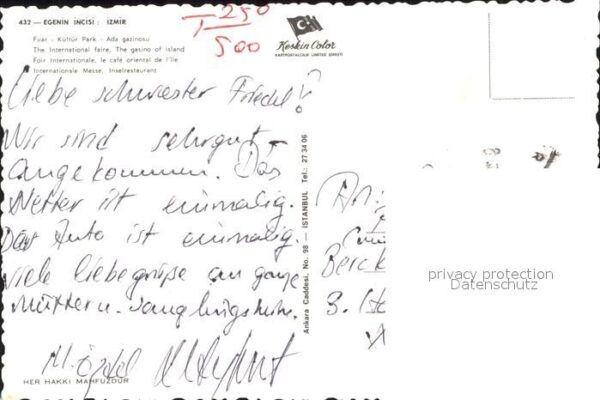 432 — EGENİN İNCİSİ : İZMİR
Fuar - Kültür Park - Ada gazinosu
The International faire, The gasino of island
Foir Internationale, le café oriental de l'île
Internationale Messe, Inselrestaurant
T 250
500
Keskin Color
KARTPOSTALCILIK LIMITED ŞİRKETİ
Liebe schwester Friedel!
Wir sind sehrgut
angekommen. Das
Wetter ist einmalig.
Das Auto ist einmalig.
Viele liebegrüße an ganze
Mütter u.
M. Özdel
HER HAKKI MAHFUZDUR
Ankara Caddesi, No. 98 — İSTANBUL Tel.: 27 34 06
An:
Berck
3.
privacy protection
Datenschutz